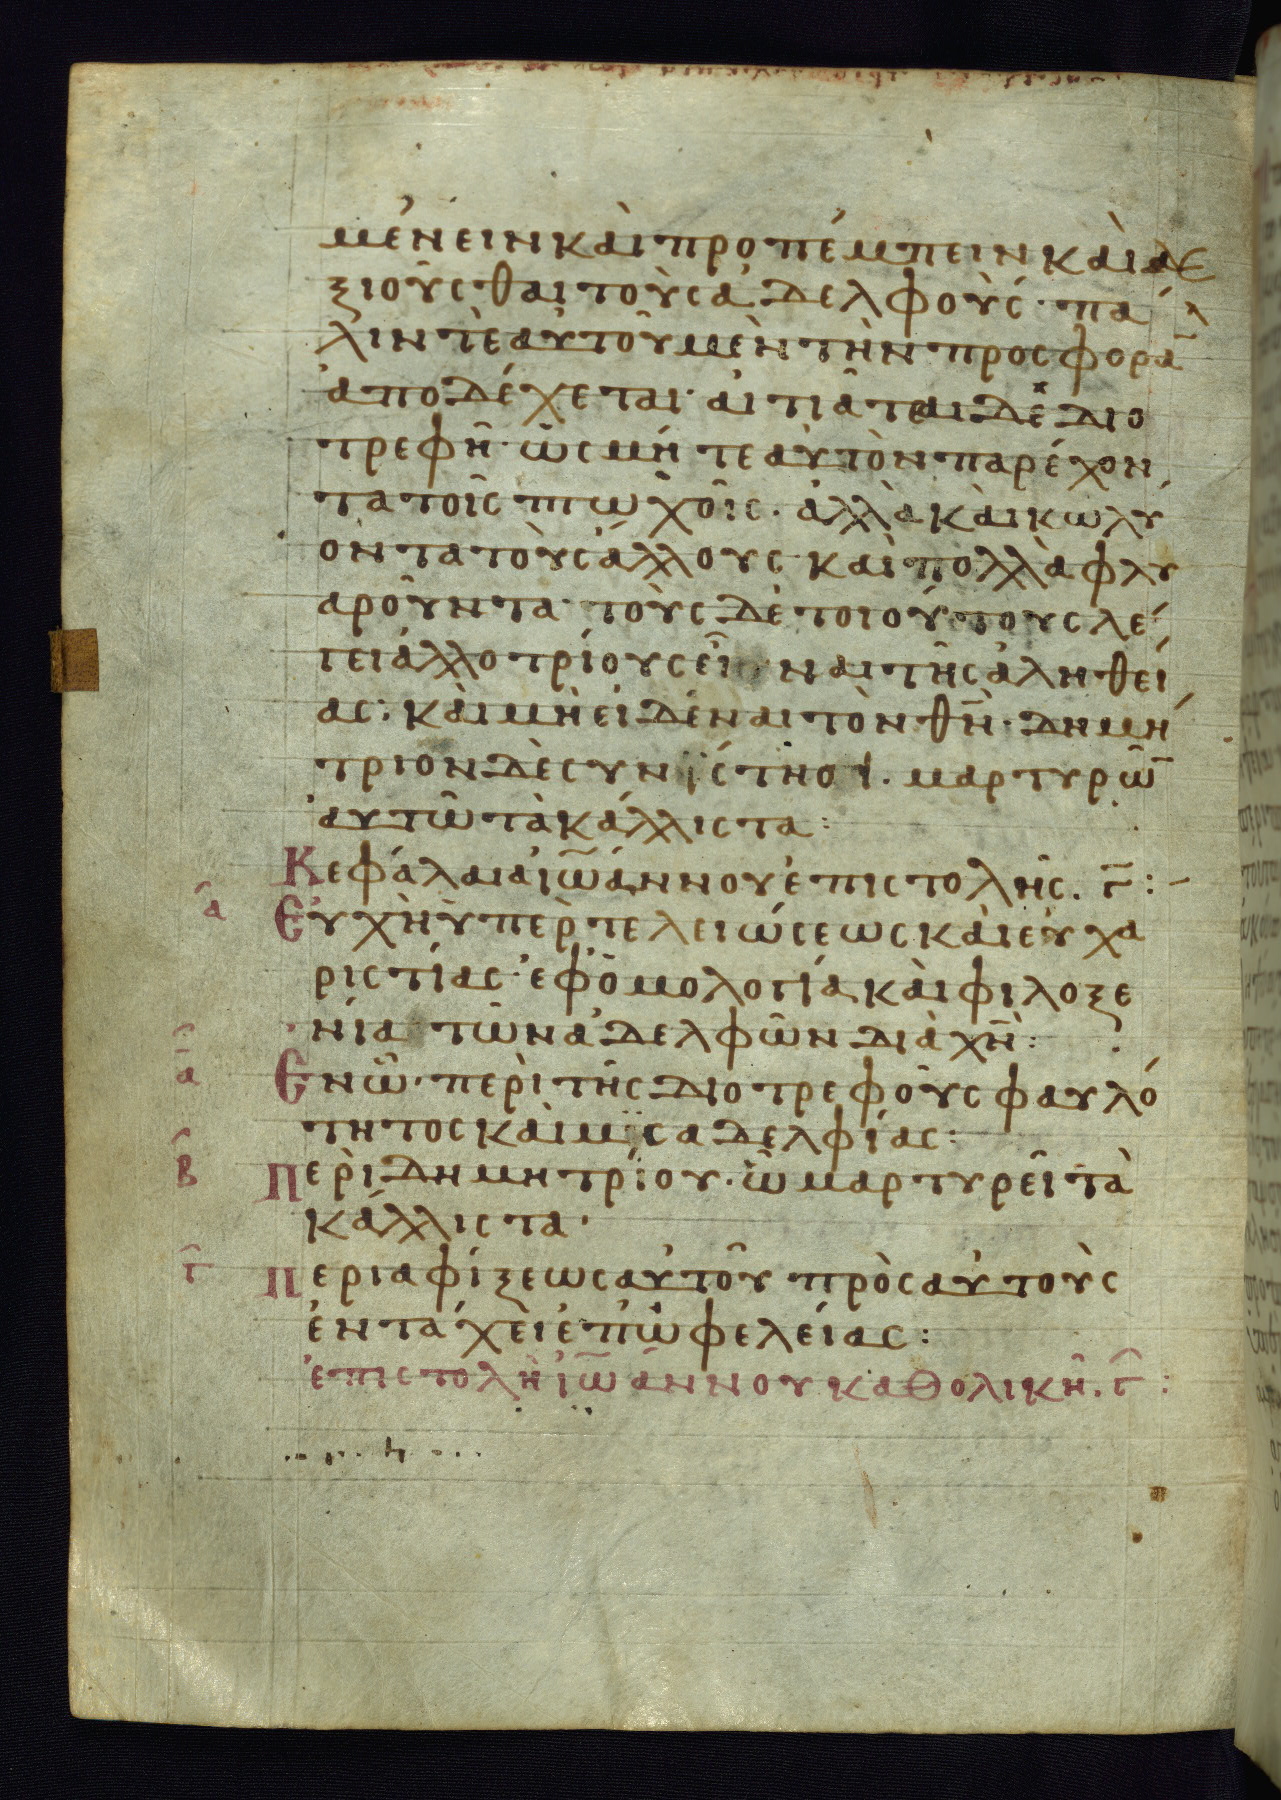 μένειν καὶ προπέμπειν καὶ δε
ξιοῦσθαι τοὺς ἀδελφούς· πά
λιν τὲ αὐτοῦ μὲν τὴν προσφορὰ̄
ἀποδέχεται· αἰτιᾶται δὲ διο
τρεφῆ· ὡς μήτε αὐτὸν παρέχον
τα τοῖς πτωχοῖς· ἀλλὰ καὶ κωλύ
οντα τοὺς ἄλλους καὶ πολλὰ φλυ
αροῦντα· τοὺς δὲ τοιούτους λέ
γει ἀλλοτρίους εἶναι τῆς ἀληθεί
ας· καὶ μὴ εἰδέναι τὸν θ̅ν̅· δημή
τριον δὲ συνίστησι· μαρτυρῶ̅
αὐτῶ τὰ κάλλιστα:
Κεφάλαια ἰω̅άννου ἐπιστολῆς. γ̅:
α Εὐχὴ ὑπὲρ τελειώσεως καὶ εὐχα
ριστίας· ἐφ ὁμολογία καὶ φιλοξε
νία τῶν ἀδελφῶν διὰ χ̅ν̅:
α Ἐν ὧ· περὶ τῆς διοτρεφοῦς φαυλό
τητος καὶ μισαδελφίας:
β Περὶ δημητρίου· ὧ μαρτυρεῖ τὰ
κάλλιστα·
γ Περὶ αφίξεως αὐτοῦ πρὸς αὐτοὺς
ἐν τάχει ἐπ' ὠφελείας:
ἐπιστολὴ ἰω̅άννου καθολικὴ. γ̅: